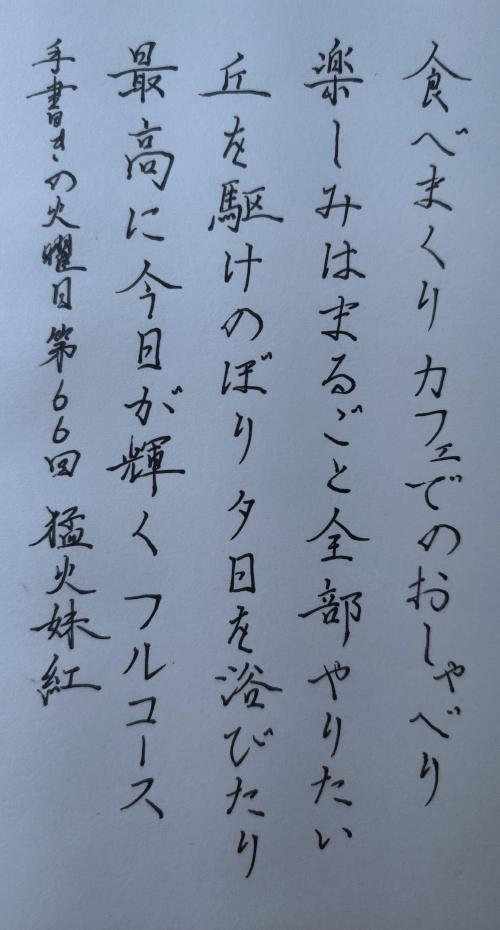 食べまくりカフェでのおしゃべり
楽しみはまるごと全部やりたい
丘を駆けのぼり夕日を浴びたり
最高に今日が輝くフルコース
手書きの火曜日第66回 猛火妹紅